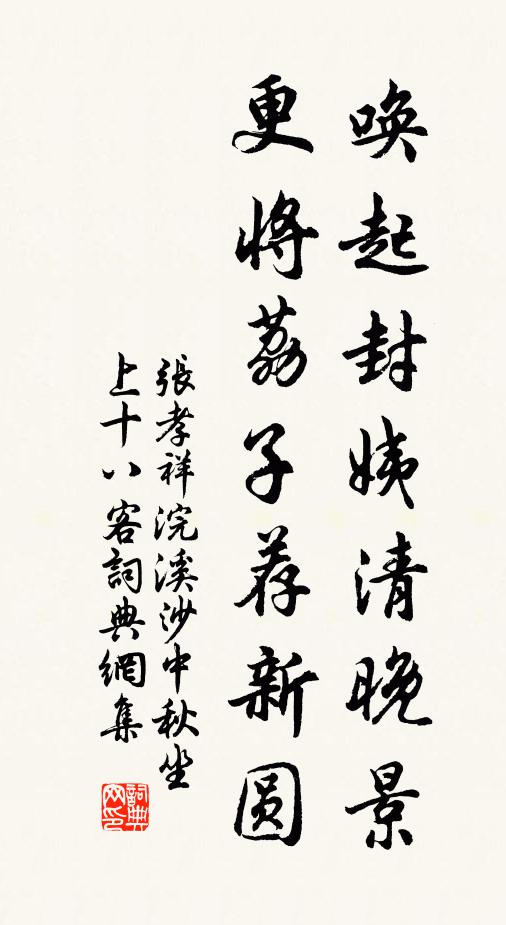 唤起封姨清晚景
更将荔子荐新圆
張孝祥浣溪沙中秋坐
上十八客詞典網集
詞典网印